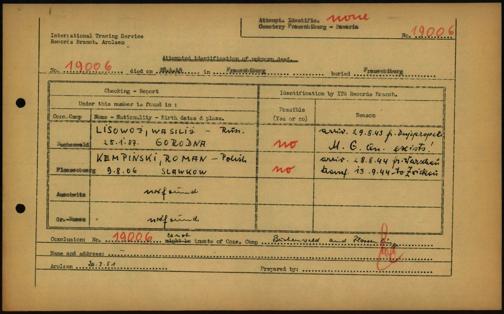 Attempt. Identific. none
Cemetery Frauenthburg - Bavaria
International Tracing Service
Records Branch, Arolsen
No. 19006
Attempted identification of unknown dead.
No. 19006 died on in Frauenthburg buried Frauenthburg
Checking - Report
Identification by ITS Records Branch.
Under this number is found in :
Possible
(Yes or no)
Reason
Conc.Camp Name - Nationality - Birth dates & place.
LISOWOJ, WASILIJ - Russ.
Buchenwald 25.1.87. GORODNA
no
arriv. 29.8.43 p.
M. G. exists!
KEMPINSKI, ROMAN - Polish
Flossenburg 9.8.06 SLAWKOW
no
arriv. 28.8.44 p. Warschau
transf. 13.9.44 to Zwickau
Auschwitz not found
Gr.-Rosen not found
Conclusion: No. 19006 cannot might be inmate of Conc. Camp Buchenwald and Flossenbürg
Name and address:
Arolsen 20.7.51
Prepared by: